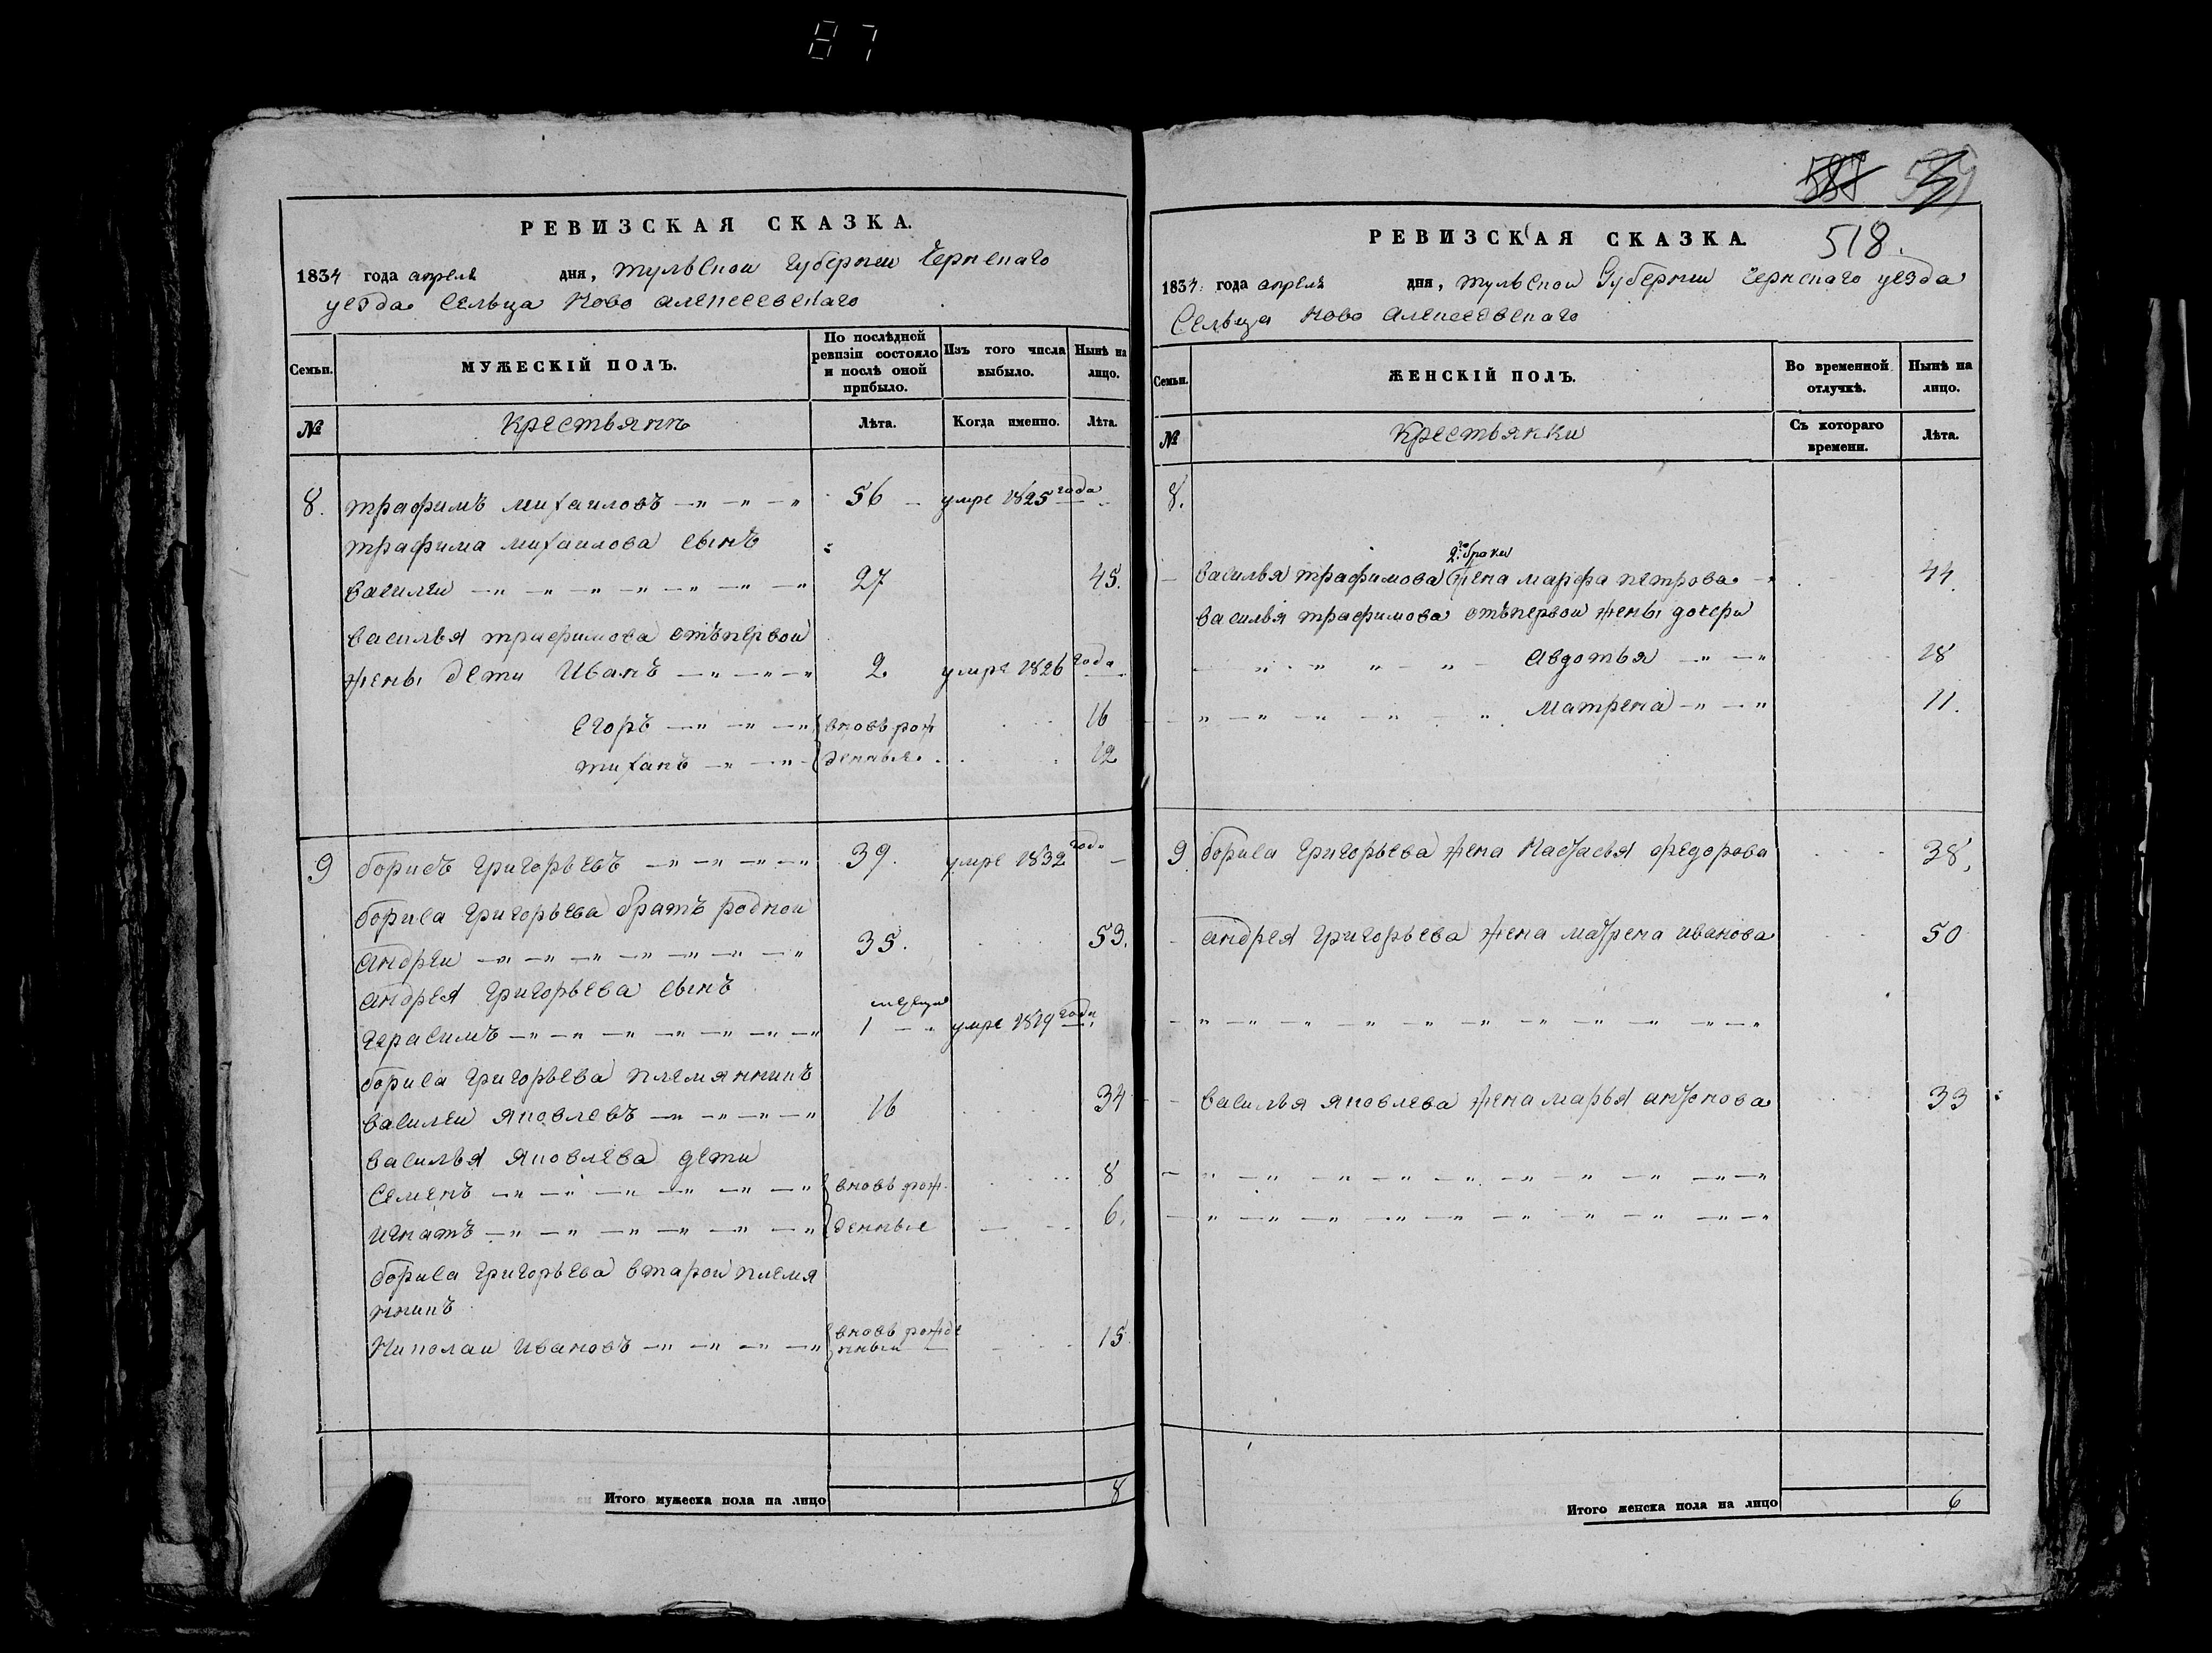 87
РЕВИЗСКАЯ СКАЗКА.
1834 года апреля дня, тульской губернии Чернскаго
уезда Сельца Ново алексеевскаго
Семьи.
МУЖЕСКІЙ ПОЛЪ.
По послѣдней ревизіи состояло и послѣ оной прибыло.
Изъ того числа выбыло.
Нынѣ на лицо.
№
Крестьянѣ
Лѣта.
Когда именно.
Лѣта.
8. трафимъ михаиловъ 56 умре 1825 года
трафима михаилова сынъ
василеи 27 45.
василья трафимова отъпервои
жены дети Иванъ 2 умре 1826 года
егоръ вновь рож 16
тиханъ денныя 12
9 борисъ григорьевъ 39. умре 1832 года
бориса григорьева братъ роднои
андреи 35. 53.
андрея григорьева сынъ
герасимъ 1 умре 1819 года
бориса григорьева племянникъ
василеи яковлевъ 16 34
василья яковлева дети
Семенъ вновь рож 8
игнатъ денные 6.
бориса григорьева втарои племя
нникъ
Николаи ивановъ вновь рожде нныи 15
Итого мужеска пола на лицо 8
518.
РЕВИЗСКАЯ СКАЗКА.
1834: года апреля дня, тульской Губернии чернскаго уезда
Сельца ново алексеевскаго
Семьи.
ЖЕНСКІЙ ПОЛЪ.
Во временной отлучкѣ.
Нынѣ на лицо.
№
Крестьянки
Съ котораго времени.
Лѣта.
8.
2го брака
василья трафимова жена марфа петрова 44
василья трафимова отъпервои жены дочери
авдотья 18
матрена 11.
9. бориса григорьева жена настасья федорова 38,
андрея григорьева жена матрена иванова 50
василья яковлева жена марья антонова 33
Итого женска пола на лицо 6